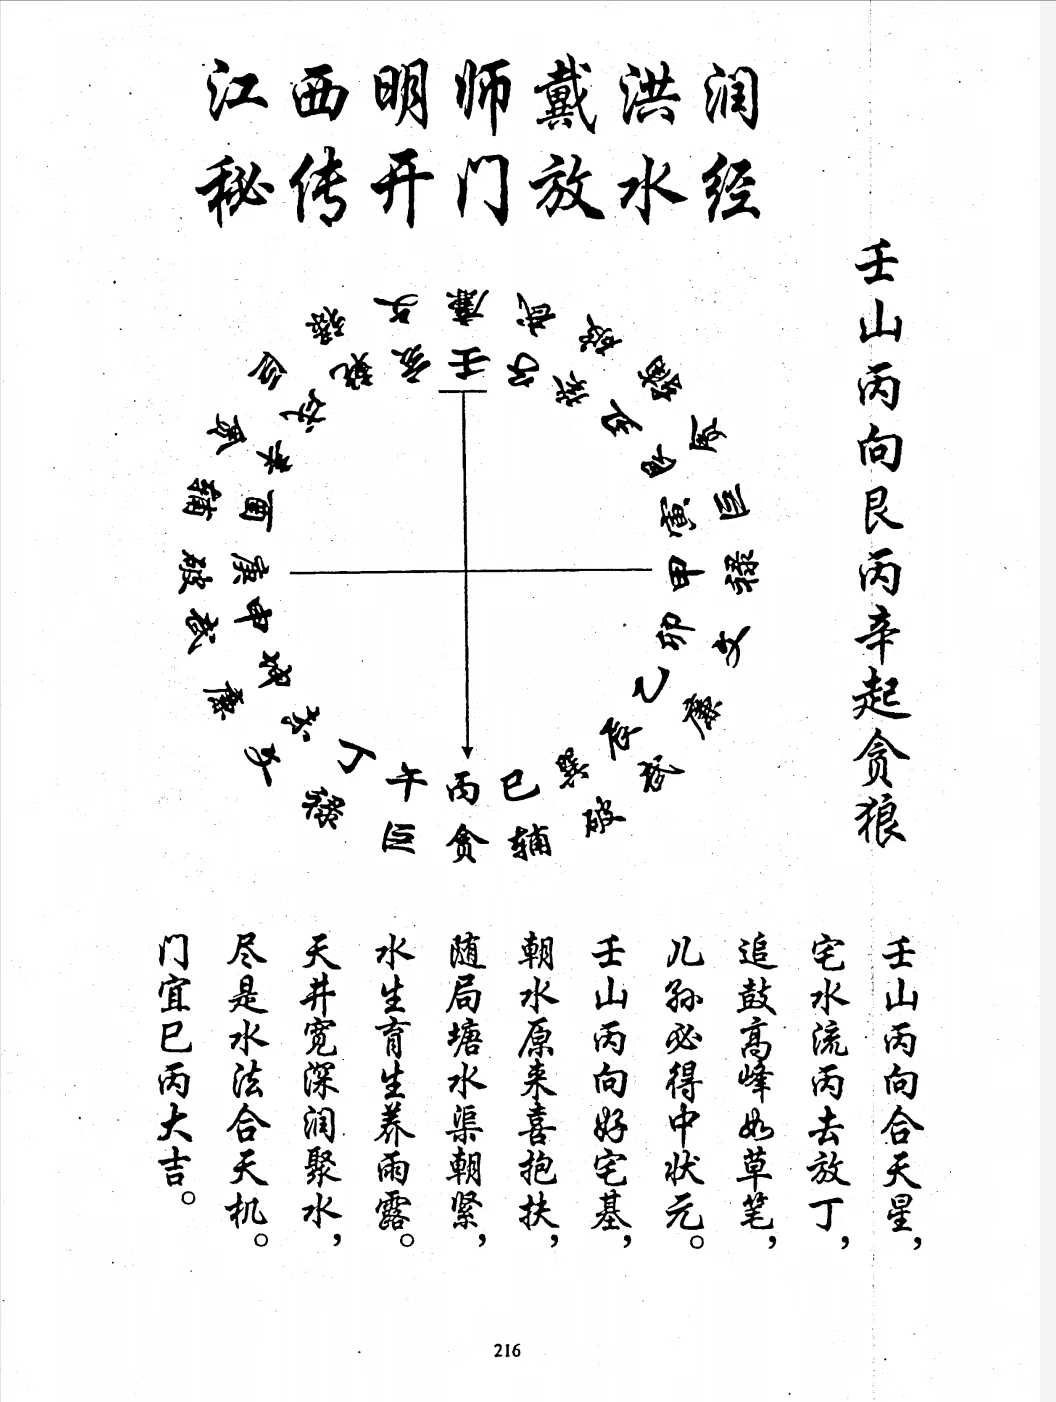 江西明师戴洪润
秘传开门放水经
壬山丙向艮丙辛起贪狼
廉武破辅贪巨禄文廉武破辅贪巨禄文廉武破辅贪巨禄文
壬子癸丑艮寅甲卯乙辰巽巳丙午丁未坤申庚酉辛戌乾亥
壬山丙向合天星，
宅水流丙去放丁，
追鼓高峰如草笔，
儿孙必得中状元。
壬山丙向好宅基，
朝水原来喜抱扶，
随局塘水渠朝紧，
水生育生养雨露。
天井宽深润聚水，
尽是水法合天机。
门宜巳丙大吉。
216